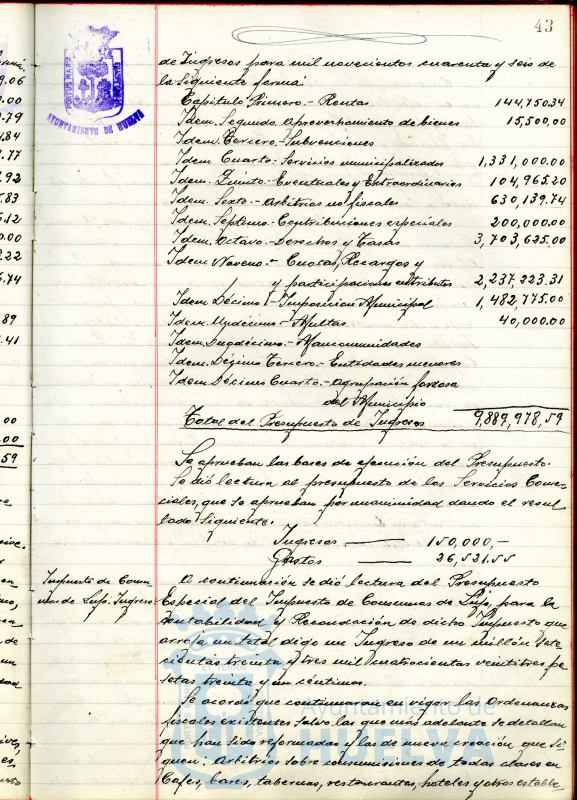 43
AYUNTAMIENTO DE HUELVA
de Ingresos para mil novecientos cuarenta y seis de
la siguiente forma:
Capitulo Primero.- Rentas 144,750.34
Idem. Segundo. Aprovechamiento de bienes 15,500,00
Idem. Tercero.- Subvenciones
Idem Cuarto.- Servicios municipalizados 1,331,000.00
Idem. Quinto.- Eventuales y Extraordinarios 104,965.20
Idem. Sexto.- Arbitrios no fiscales 630,139.74
Idem. Septimo.- Contribuciones especiales 200,000.00
Idem. Octavo.- Derechos y Tasas 3,703,625.00
Idem Noveno.- Cuotas, Recargos y
y participaciones en tributos 2,237,223.31
Idem Décimo.- Imposicion Municipal 1,482,775.00
Idem. Undécimo.- Multas 40,000.00
Idem. Duodécimo.- Mancomunidades
Idem. Décimo Tercero.- Entidades menores
Idem. Décimo Cuarto.- Agrupación forzosa
del Municipio
Total del Presupuesto de Ingresos 9,889,978,59
Se aprueban las bases de ejecución del Presupuesto.
Se dió lectura al presupuesto de los Servicios Comer-
ciales, que se aprueban por unanimidad dando el resul-
tado siguiente.
Ingresos 150,000,-
Gastos 26,521.55
Impuesto de Consu-
mos de Lujo. Ingreso.
A continuación se dió lectura del Presupuesto
Especial del Impuesto de Consumos de Lujo, para la
contabilidad y Recaudación de dicho Impuesto que
arroja un total digo un Ingreso de un millón sete
cientas treinta y tres mil cuatrocientas veintitres pe
setas treinta y un céntimos.
Se acordó que continuaran en vigor las Ordenanzas
fiscales existentes salvo las que más adelante se detallan
que han sido reformadas y las de nueva creación que si-
guen: Arbitrios sobre consumisiones de todas clases en
Cafes, bares, tabernas, restaurantes, hoteles y otros estable
Ayuntamiento de
HUELVA
9.06
0.00
.79
.84
2.77
.92
5.83
6.12
0.00
2.22
6.74
89
.41
00
.00
59